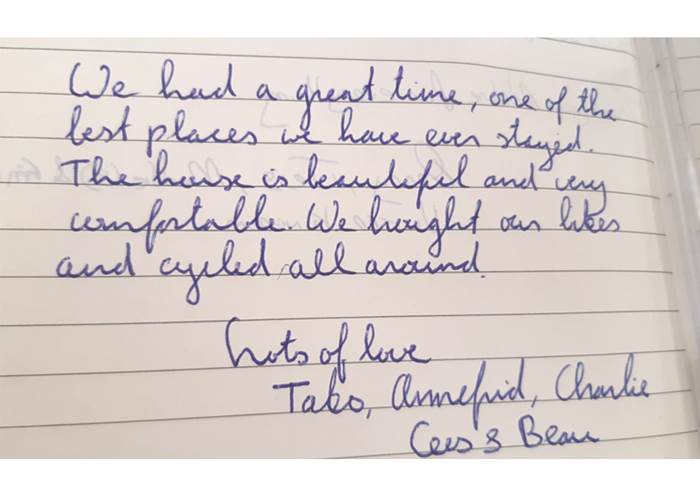 We had a great time, one of the
best places we have ever stayed.
The house is beautiful and very
comfortable. We brought our bikes
and cycled all around.
Lots of love
Tako, Charlie
Cees & Beau